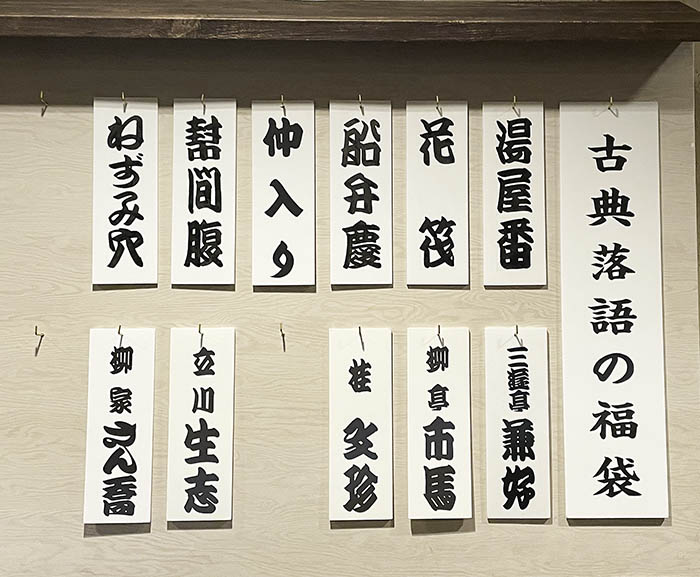 古典落語の福袋
湯屋番
花筏
船弁慶
仲入り
幇間腹
ねずみ穴
三遊亭兼好
柳亭市馬
桂文珍
立川生志
柳家さん喬